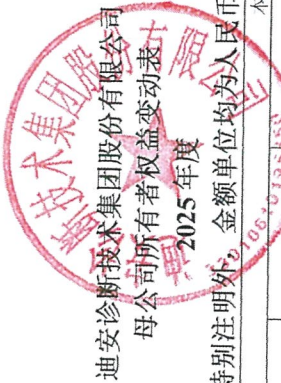 迪安诊断技术集团股份有限公司
母公司所有者权益变动表
2025 年度
特别注明外，金额单位均为人民币
本
断技术集团股份有限公司